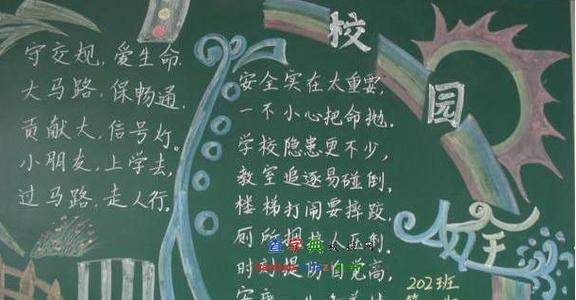 校园
安全
守交规,爱生命.
大马路,保畅通.
贡献大,信号灯。
小朋友,上学去,
过马路,走人行。
安全实在太重要,
一不小心把命抛.
学校隐患更不少,
教室追逐易碰倒.
楼梯打闹要摔跤,
厕所拥挤人
时刻提 自觉高,
202班
查字典